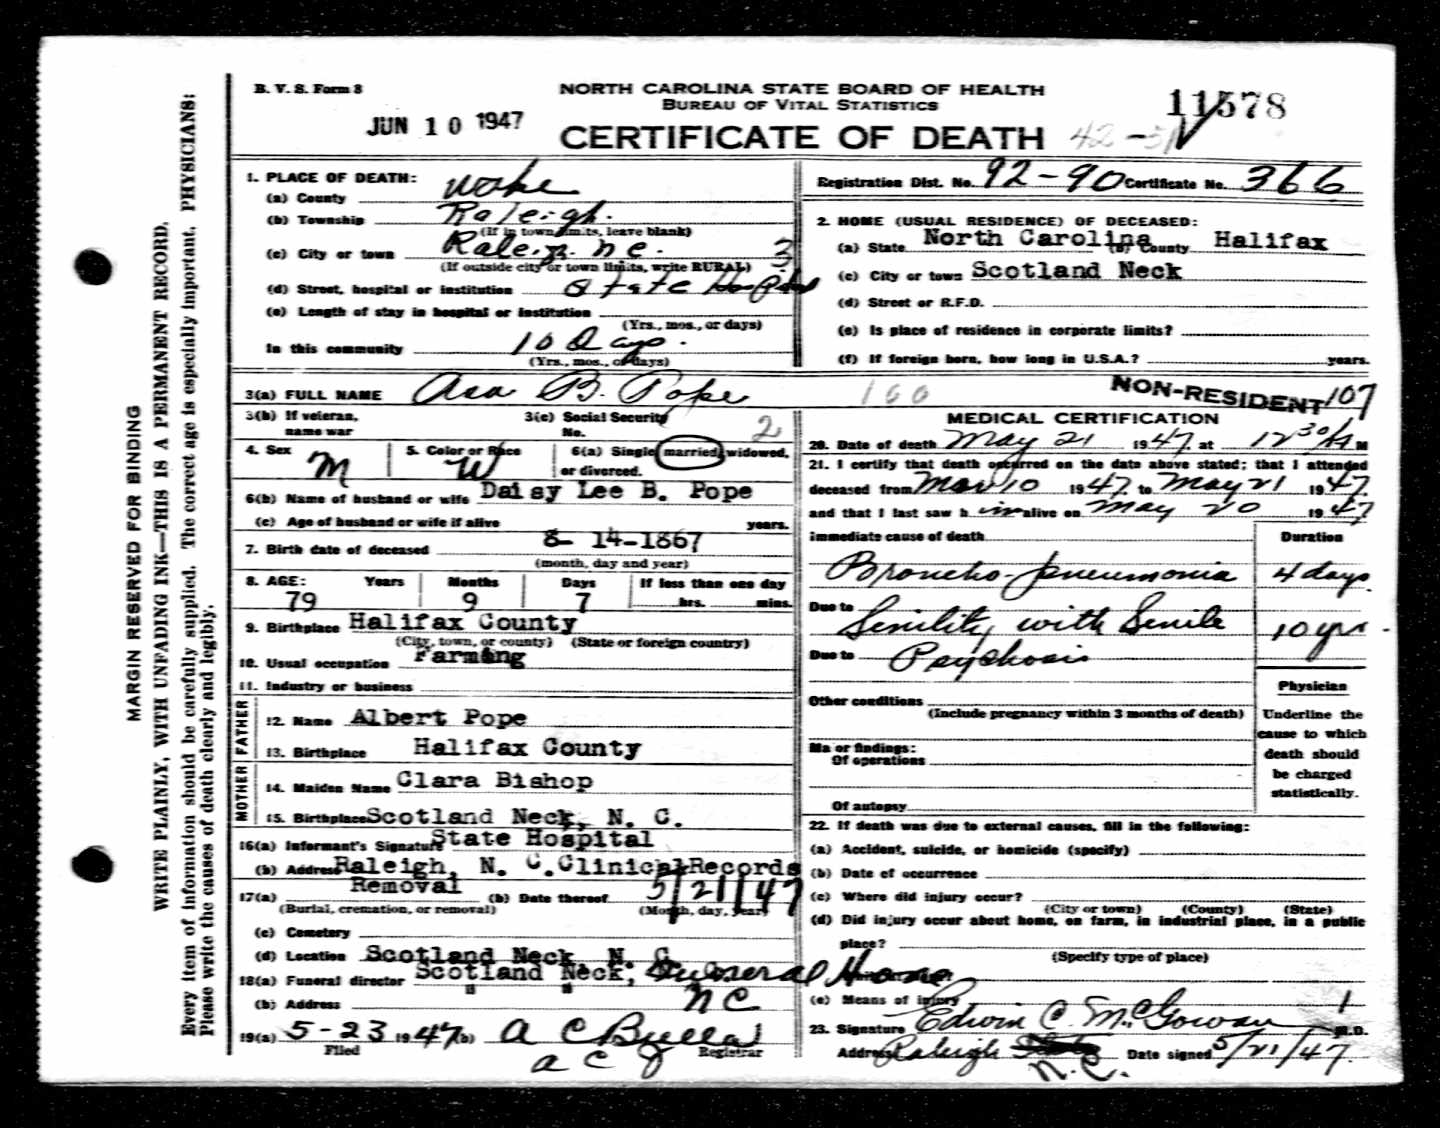 B. V. S. Form 8
NORTH CAROLINA STATE BOARD OF HEALTH
BUREAU OF VITAL STATISTICS
CERTIFICATE OF DEATH
JUN 10 1947
11578
42-
Registration Dist. No. 92-90 Certificate No. 366
MARGIN RESERVED FOR BINDING
WRITE PLAINLY, WITH UNFADING INK—THIS IS A PERMANENT RECORD.
Every item of information should be carefully supplied. The correct age is especially important. PHYSICIANS:
Please write the causes of death clearly and legibly.
1. PLACE OF DEATH:
(a) County Wake
(b) Township Raleigh.
(If in town limits, leave blank)
(c) City or town Raleigh. N C. 3
(If outside city or town limits, write RURAL) 3
(d) Street, hospital or institution State Hospital
(e) Length of stay in hospital or institution
(Yrs., mos., or days)
In this community 10 Days.
(Yrs., mos., or days)
2. HOME (USUAL RESIDENCE) OF DECEASED:
(a) State North Carolina (b) County Halifax
(c) City or town Scotland Neck
(d) Street or R.F.D.
(e) Is place of residence in corporate limits?
(f) If foreign born, how long in U.S.A.? years.
3(a) FULL NAME Asa B. Pope
160
NON-RESIDENT 107
3(b) If veteran,
name war
3(c) Social Security
No.
2
4. Sex M
5. Color or Race W
6(a) Single, married, widowed,
or divorced.
6(b) Name of husband or wife Daisy Lee B. Pope
(c) Age of husband or wife if alive years.
7. Birth date of deceased 8- 14-1867
(month, day and year)
8. AGE: Years Months Days If less than one day
79 9 7 hrs. mins.
9. Birthplace Halifax County
(City, town, or county) (State or foreign country)
10. Usual occupation Farming
11. Industry or business
FATHER
12. Name Albert Pope
13. Birthplace Halifax County
MOTHER
14. Maiden Name Clara Bishop
15. Birthplace Scotland Neck, N. C.
16(a) Informant's Signature State Hospital
(b) Address Raleigh, N. C. Clinical Records
17(a) Removal (b) Date thereof 5/21/47
(Burial, cremation, or removal) (Month, day, year)
(c) Cemetery
(d) Location Scotland Neck N. C.
18(a) Funeral director Scotland Neck, Funeral Home
(b) Address " " N C
19(a) 5-23 1947 (b) A C Bulla
Filed Registrar
a c J
MEDICAL CERTIFICATION
20. Date of death May 21 1947 at 12 30 A M
21. I certify that death occurred on the date above stated; that I attended
deceased from Mar 10 1947. to May 21 1947.
and that I last saw h im alive on May 20 1947
Immediate cause of death Duration
Broncho-pneumonia 4 days.
Due to Senility with Senile 10 yrs.
Due to Psychosis
Other conditions
(Include pregnancy within 3 months of death)
Major findings:
Of operations
Of autopsy
Physician
Underline the
cause to which
death should
be charged
statistically.
22. If death was due to external causes, fill in the following:
(a) Accident, suicide, or homicide (specify)
(b) Date of occurrence
(c) Where did injury occur?
(City or town) (County) (State)
(d) Did injury occur about home, on farm, in industrial place, in a public
place?
(Specify type of place)
(e) Means of injury 1
23. Signature Edwin C. McGowan M.D.
Address Raleigh N.C. Date signed 5/21/47.